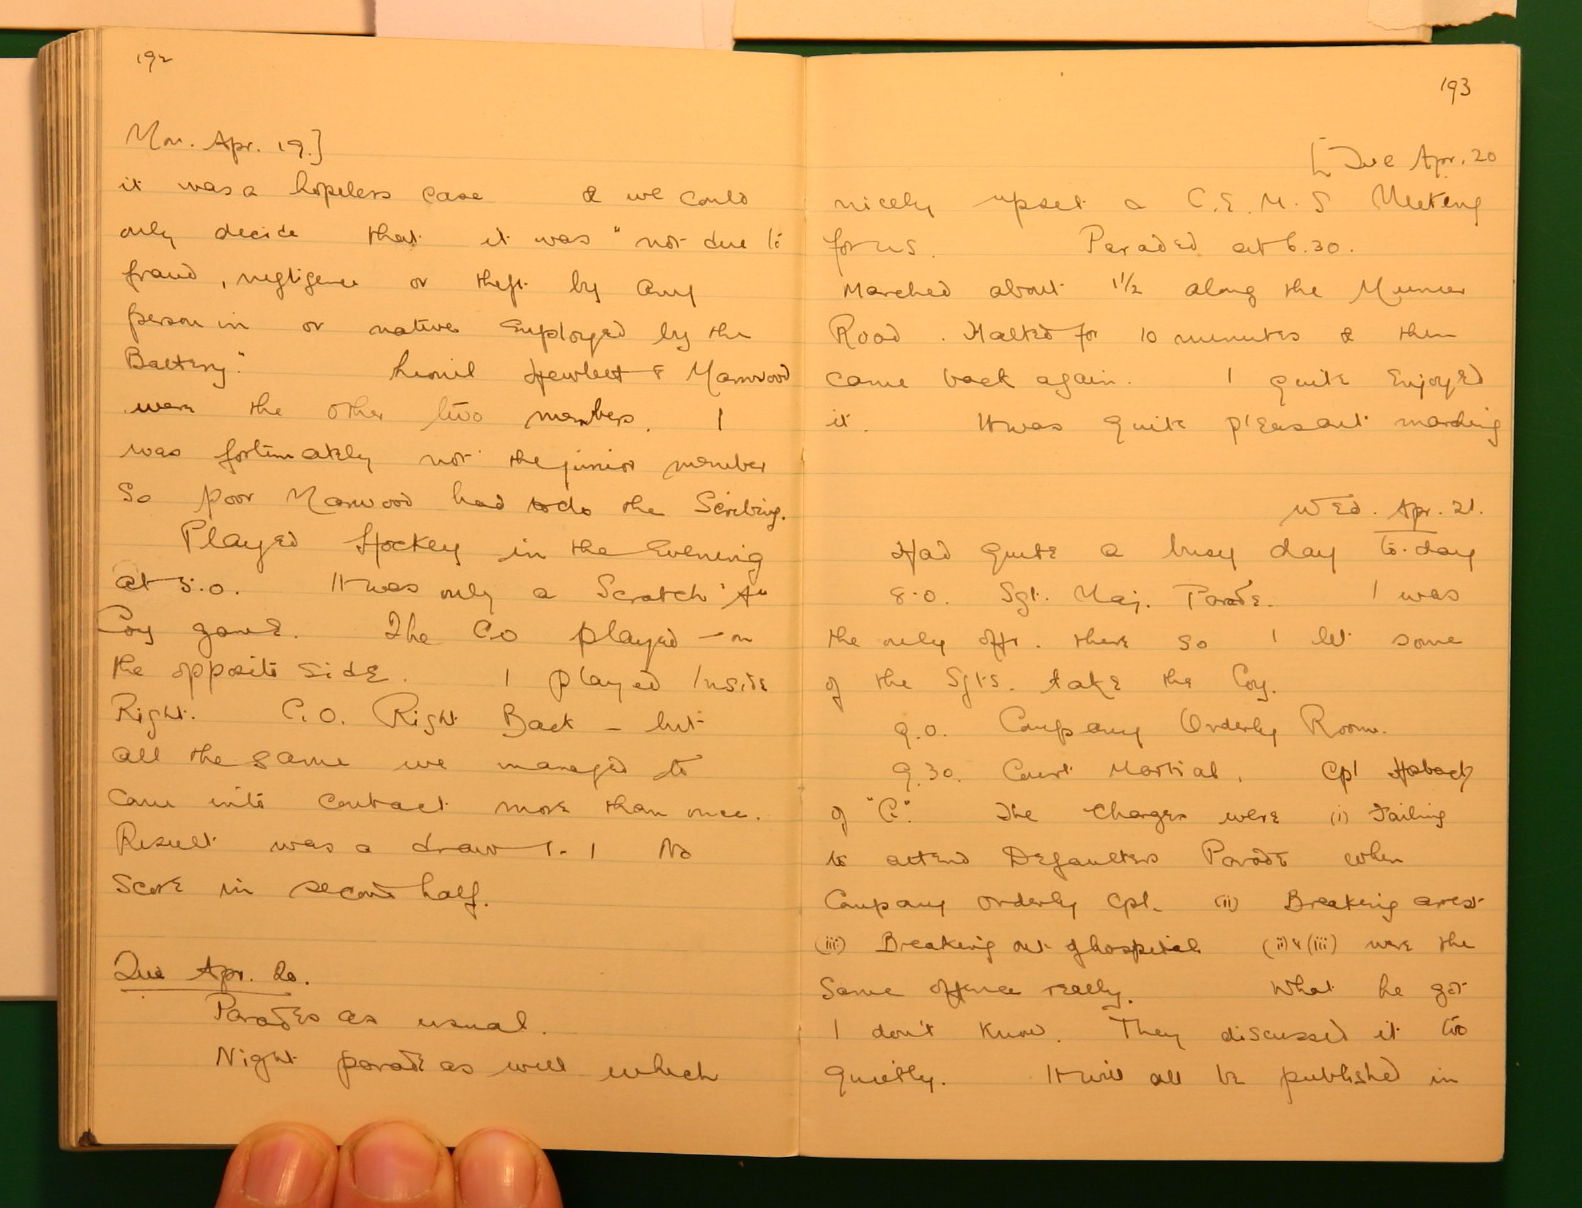 192
Mon. Apr. 19.]
it was a hopeless case & we could
only decide that it was "not due to
fraud, negligence or theft by any
person in or natives employed by the
Battery." Lionel Hewlett & Marwood
were the other two members. I
was fortunately not the junior member
So poor Marwood had to do the Scribing.
Played Hockey in the Evening
at 5.0. It was only a Scratch "A"
Coy game. The CO played - on
the opposite side. I played Inside
Right. C.O. Right Back - but
all the same we managed to
come into contact more than once.
Result was a draw 1-1 No
Score in second half.
Tue Apr. 20.
Parades as usual.
Night parade as well which
193
[Tue Apr. 20
nicely upset a C.E.M.S Meeting
for us. Paraded at 6.30.
Marched about 1 1/2 along the
Road. Halted for 10 minutes & then
came back again. I quite enjoyed
it. It was quite pleasant marching
Wed. Apr. 21.
Had quite a busy day to-day
8.0. Sgt. Maj. Parade. I was
the only offr. there so I let some
of the Sgts. take the Coy.
9.0. Company Orderly Room.
9.30. Court Martial. Cpl
of "C". The Charges were (i) Failing
to attend Defaulters Parade when
Company Orderly Cpl. (ii) Breaking arrest
(iii) Breaking out of hospital (ii) & (iii) were the
Same offence really. What he got
I don't know. They discussed it too
quietly. It will all be published in